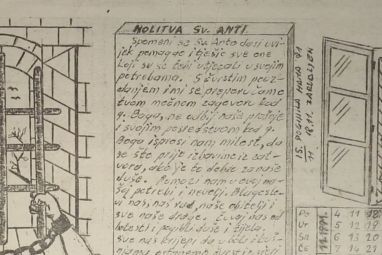 MOLITVA SV. ANTI
Spomeni se Sv. Anto da si uvi-
jek pomagao i tješio sve one
koji su se tebi utjecali u svojim
potrebama. S čvrstim pouz-
danjem i mi se preporučamo
tvom moćnom zagovoru kod
g. Boga, ne odbij naše prošnje
i svojim posredstvom kod g.
Boga isprosi nam milost, da
se što prije izbavimo iz zat-
vora, ako je to dobro za naše
duše. Pomozi nam u ovoj na-
šoj potrebi i nevolji. Blagoslo-
vi nas, naš rad, naše obitelji i
sve naše drage. Čuvaj nas od
bolesti i pogibli duše i tijela.
nas da u boli i kuš-
11 18.11. ZAROBLJEN
11.1991.
Po 4 11 18
Ur 5 12 19
Sr 6 13 20
Če 7 14 21